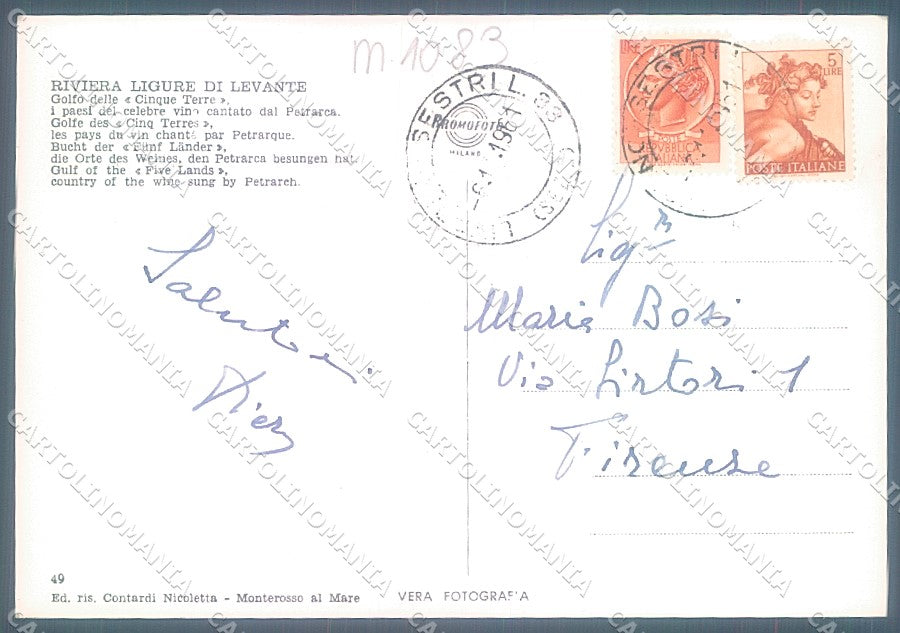 m.1083
RIVIERA LIGURE DI LEVANTE
Golfo delle « Cinque Terre »,
i paesi del celebre vino cantato dal Petrarca.
Golfe des « Cinq Terres »,
les pays du vin chanté par Petrarque.
Bucht der « Fünf Länder »,
die Orte des Weines, den Petrarca besungen hat.
Gulf of the « Five Lands »,
country of the wine sung by Petrarch.
SESTRI L.
1961
PROMOFOTO
MILANO
SESTRI
POSTE
REPVBBLICA
ITALIANA
5
LIRE
POSTE ITALIANE
Saluti
Sig.
Maria Bosi
Via Sirtori 1
Firenze
49
Ed. ris. Contardi Nicoletta - Monterosso al Mare
VERA FOTOGRAFIA
CARTOLINOMANIA